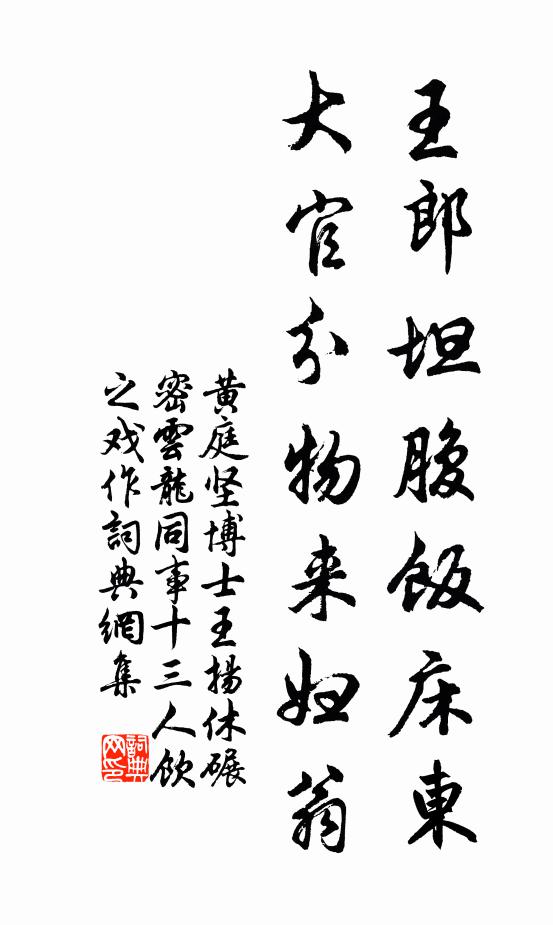 王郎坦腹飯床東
大官分物来婦翁
黄庭坚博士王揚休碾
密雲龍同事十三人飲
之戏作詞典網集
詞典網印